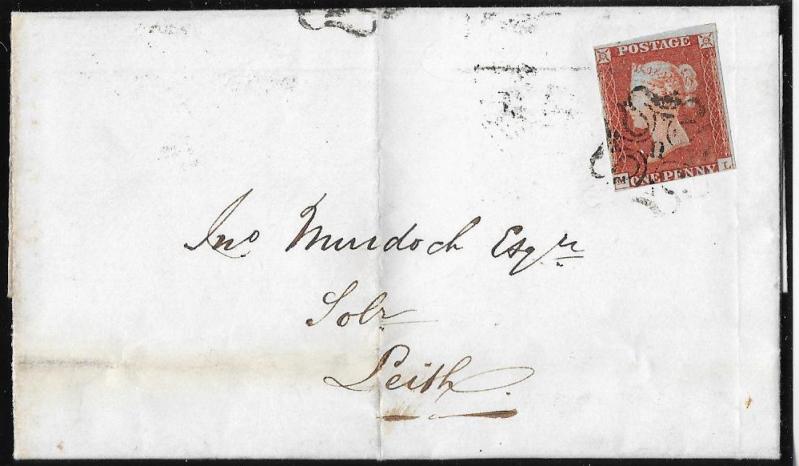 POSTAGE
M ONE PENNY L
Jno Murdoch Esqr
Solr
Leith